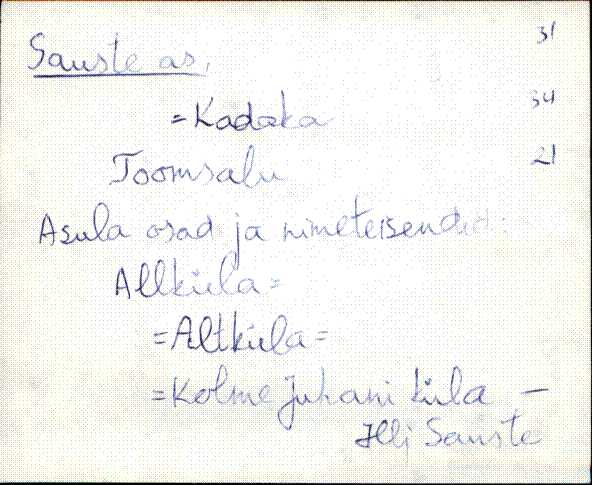 Sauste as. 31
=Kadaka 34
Toomsalu 21
Asula osad ja nimeteisendid:
Allküla=
=Altküla=
=Kolme Juhani küla –
Sauste